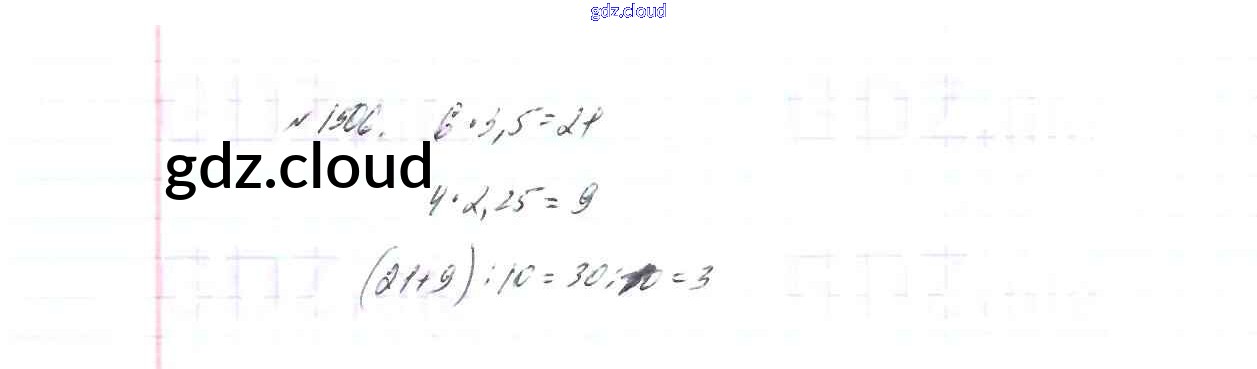 gdz.cloud
№ 1506. 6·3,5=21
gdz.cloud
4·2,25=9
(21+9):10=30:10=3